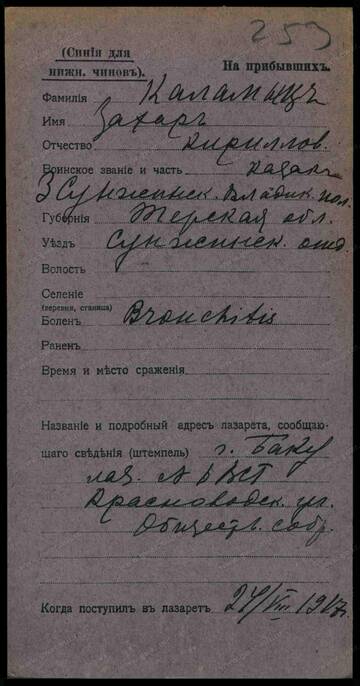 253
(Синія для
нижн. чиновъ).
На прибывшихъ.
Фамилія Каламыцъ
Имя Захаръ
Отчество Кириллов.
Воинское званіе и часть казакъ
3 Сунженск. Владик. пол.
Губернія Терская обл.
Уѣздъ Сунженск. отд.
Волость
Селеніе
(деревня, станица)
Боленъ Bronchitis
Раненъ
Время и мѣсто сраженія
Названіе и подробный адресъ лазарета, сообщаю-
щаго свѣдѣнія (штемпель) г. Баку
лаз.
Красноводск. ул.
Обществ. собр.
Когда поступилъ въ лазаретъ 24/VIII 1917.